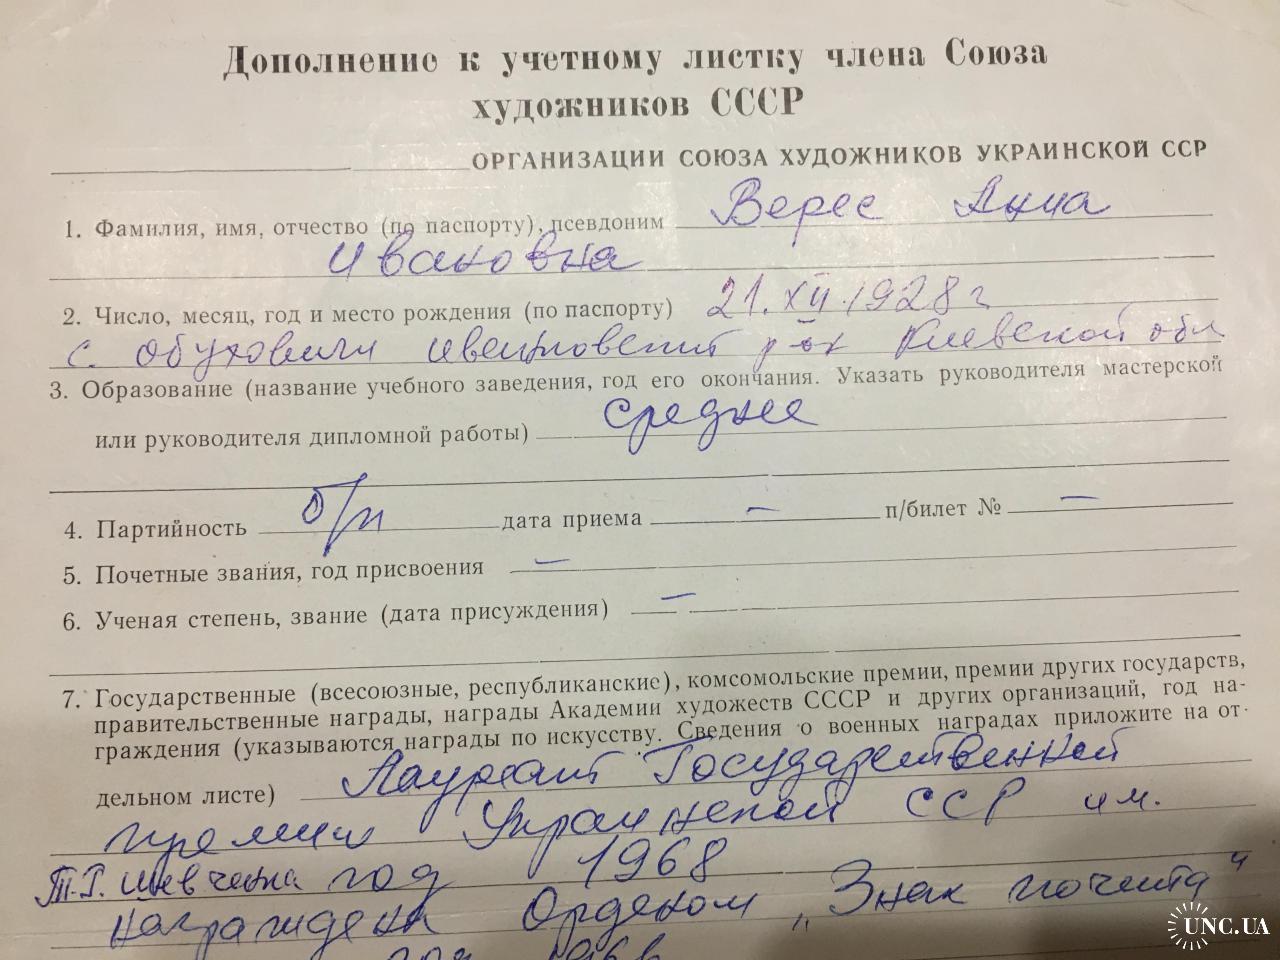 Дополнение к учетному листку члена Союза
художников СССР
ОРГАНИЗАЦИИ СОЮЗА ХУДОЖНИКОВ УКРАИНСКОЙ ССР
1. Фамилия, имя, отчество (по паспорту), псевдоним Верес Анна
Ивановна
2. Число, месяц, год и место рождения (по паспорту) 21.XII.1928 г
с. Обуховичи Иванковский р-он Киевской обл
3. Образование (название учебного заведения, год его окончания. Указать руководителя мастерской
или руководителя дипломной работы) среднее
4. Партийность б/п дата приема — п/билет № —
5. Почетные звания, год присвоения —
6. Ученая степень, звание (дата присуждения) —
7. Государственные (всесоюзные, республиканские), комсомольские премии, премии других государств,
правительственные награды, награды Академии художеств СССР и других организаций, год на-
граждения (указываются награды по искусству. Сведения о военных наградах приложите на от-
дельном листе) Лауреат Государственной
премии Украинской ССР им.
Т.Г. Шевченка год 1968
награждена Орденом „Знак почета"
год 1966
UNC.UA